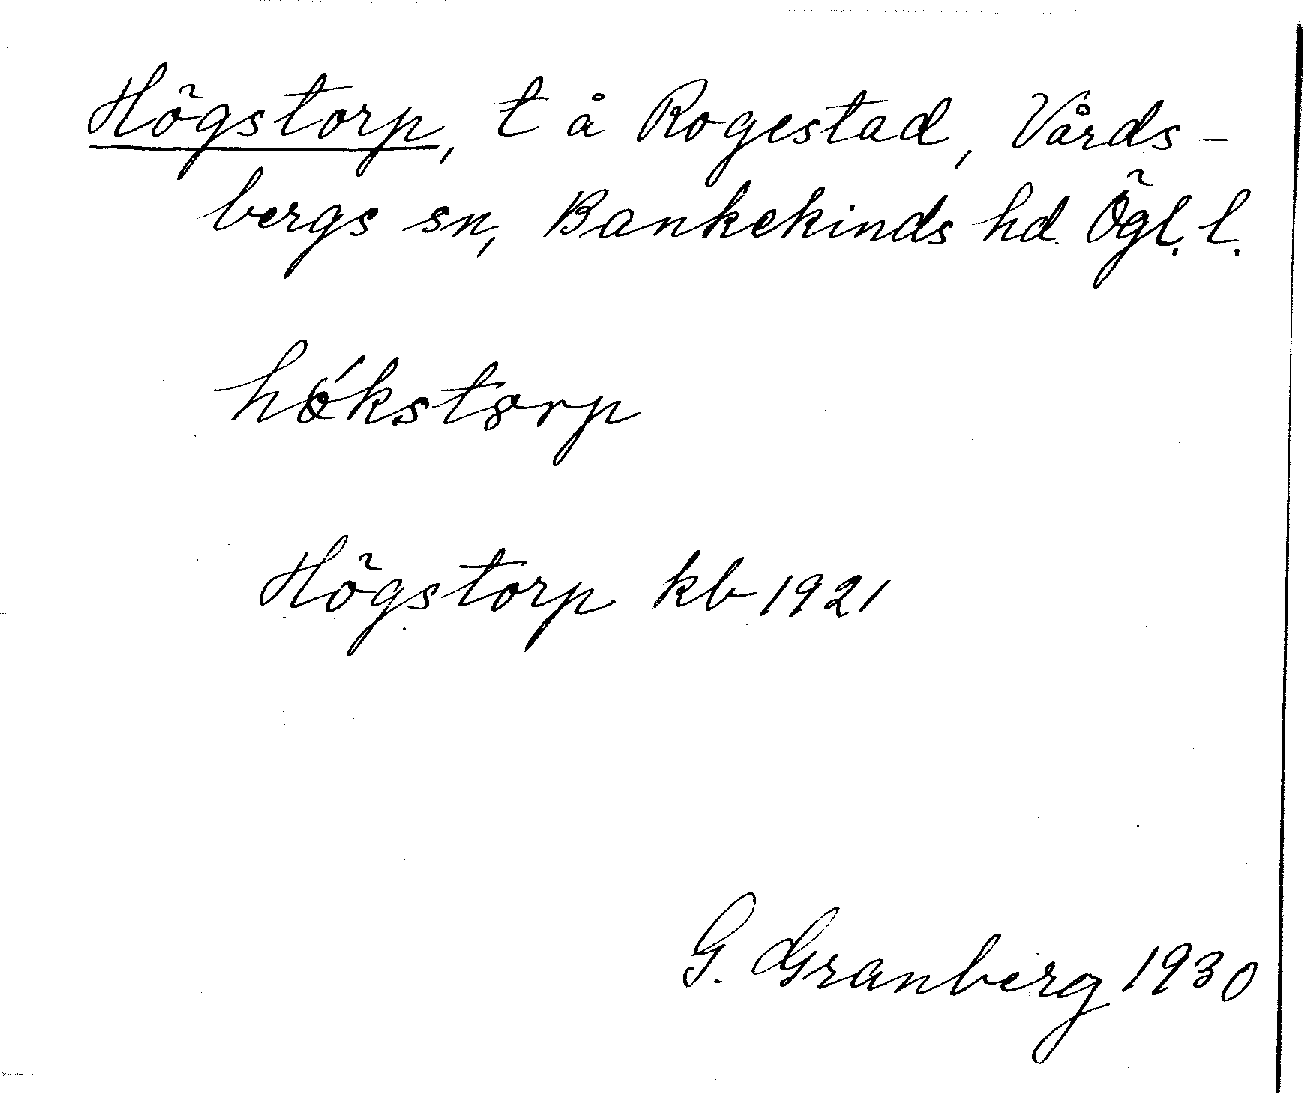 Högstorp, t å Rogestad, Vårds-
bergs sn, Bankekinds hd. Ögl. l.
hǿkstorp
Högstorp kb 1921
G. Granberg 1930